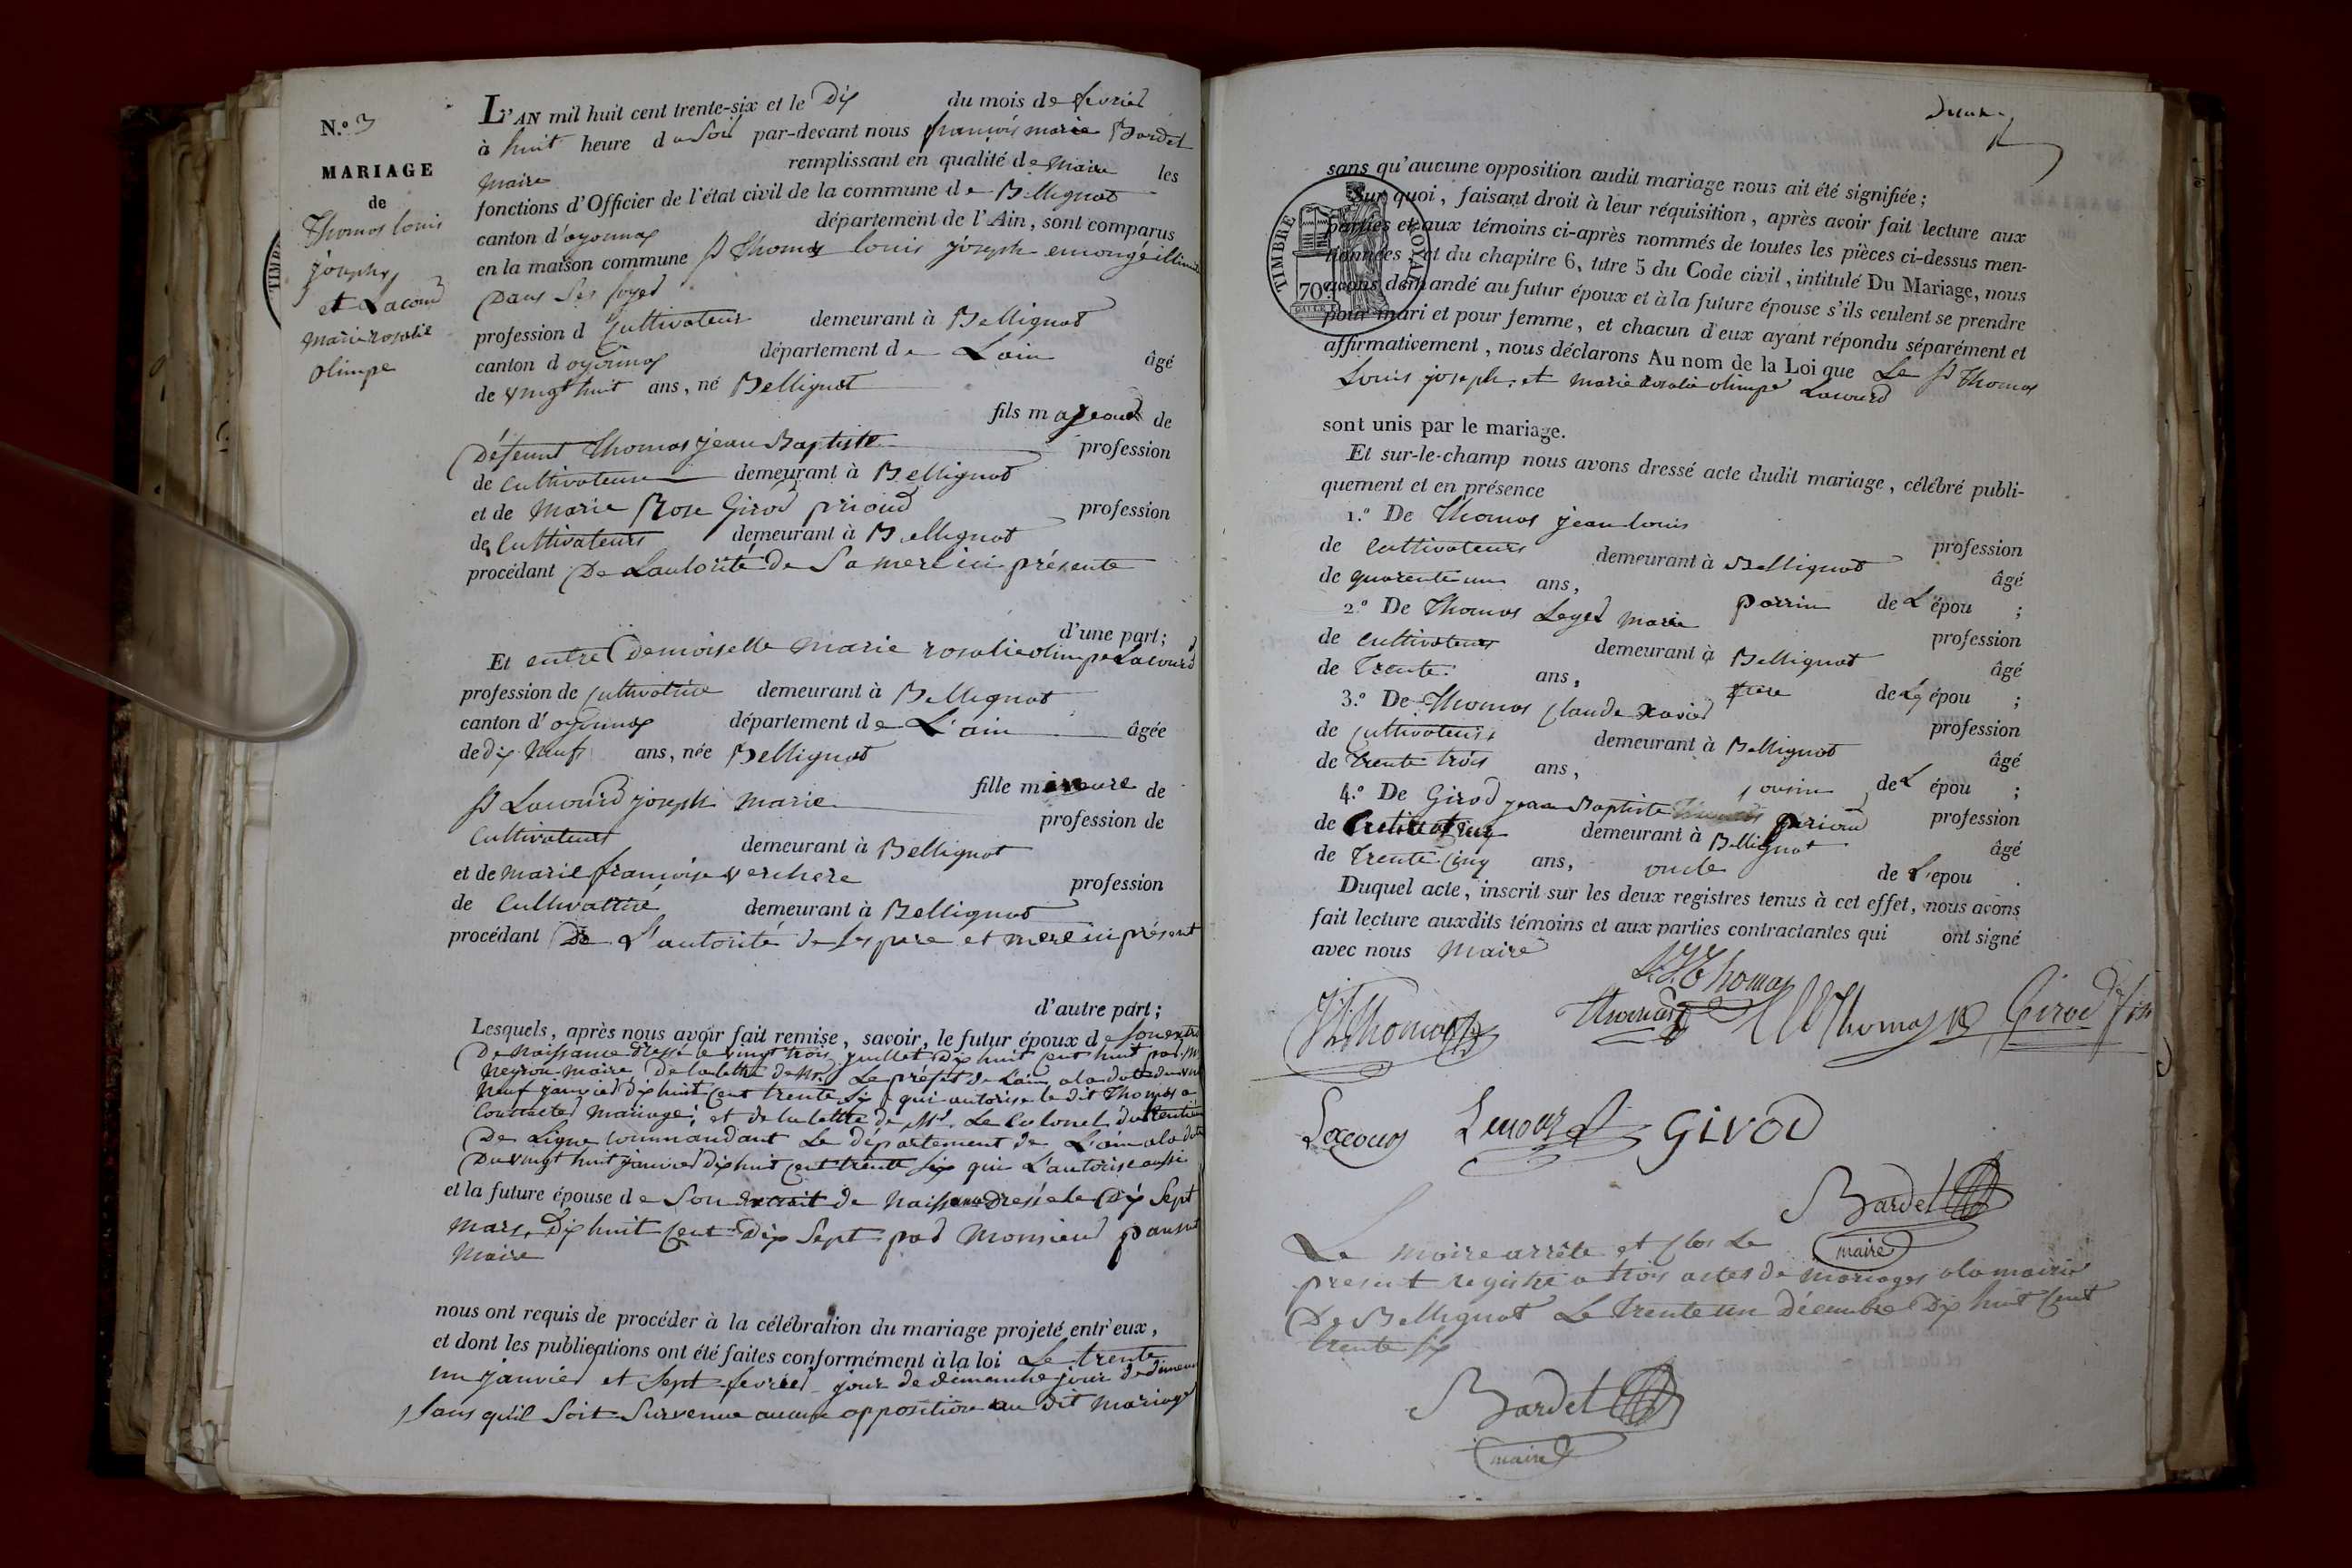 N.º 3
MARIAGE
de
Thomas louis
joseph
et Lacourd
marie rosalie
olimpe
L'AN mil huit cent trente-six et le Dix du mois de fevrier
à huit heure du Soir par-devant nous françois marie Bardet
maire remplissant en qualité de maire les
fonctions d'Officier de l'état civil de la commune de Bellignat
canton d'oyonnax département de l'Ain, sont comparus
en la maison commune Sr Thomas louis joseph en congé illimité
Dans Ses foyer
profession d Cultivateur demeurant à Bellignat
canton d oyonnax département de Lain âgé
de vingt huit ans, né Bellignat
fils majeur de
Défeunt Thomas jean Baptiste profession
de Cultivateur demeurant à Bellignat
et de Marie Rose Girod prioud profession
de Cultivateurs demeurant à Bellignat
procédant De Lautorité de Sa mere ici présente
d'une part;
Et entre Demoiselle marie rosalie olimpe Lacourd
profession de Cultivatrice demeurant à Bellignat
canton d'oyonnax département de L'ain âgée
de dix Neuf ans, née Bellignat
fille mineure de
Sr Lacourd joseph marie profession de
Cultivateurs demeurant à Bellignat
et de marie françoise verchere profession
de Cultivatrice demeurant à Bellignat
procédant De L'autorité de Ses pere et mere ici présent
d'autre part;
Lesquels, après nous avoir fait remise, savoir, le futur époux de Son extrait
De Naissance Dressé le vingt trois juillet Dix huit Cent huit par Mr
Neyron maire, De la lettre de Mr Le préfet de L'ain a la date du vingt
Neuf janvier Dix huit Cent trente Six qui autorise le dit Thomas a
Contracter Mariage; et de la lettre de Mr. Le Colonel du trentième
De Ligne Commandant Le département de L'ain a la date
Du vingt huit janvier Dix huit Cent trente Six qui L'autorise aussi
et la future épouse de Son extrait de Naissance Dressé le Dix Sept
Mars, Dix huit Cent Dix Sept par Monsieur
Maire
nous ont requis de procéder à la célébration du mariage projeté entr'eux,
et dont les publications ont été faites conformément à la loi Le trente
un janvier et Sept fevrier jour de dimanche jour de dimanche
Sans qu'il Soit Survenue aucune opposition au dit Mariage
deux
sans qu'aucune opposition audit mariage nous ait été signifiée;
Sur quoi, faisant droit à leur réquisition, après avoir fait lecture aux
parties et aux témoins ci-après nommés de toutes les pièces ci-dessus men-
tionnées, et du chapitre 6, titre 5 du Code civil, intitulé Du Mariage, nous
avons demandé au futur époux et à la future épouse s'ils veulent se prendre
pour mari et pour femme, et chacun d'eux ayant répondu séparément et
affirmativement, nous déclarons Au nom de la Loi que Le Sr Thomas
Louis joseph et marie rosalie olimpe Lacourd
TIMBRE ROYAL
70
sont unis par le mariage.
Et sur-le-champ nous avons dressé acte dudit mariage, célébré publi-
quement et en présence
1.º De Thomas jean louis profession
de Cultivateurs demeurant à Bellignat âgé
de quarente un ans, parrin de L'épou ;
2.º De Thomas Leger Marie profession
de Cultivateurs demeurant à Bellignat âgé
de Trente ans, frere de L épou ;
3.º De Thomas Claude Xavier profession
de Cultivateurs demeurant à Bellignat âgé
de Trente trois ans, Cousin de L épou ;
4.º De Girod jean Baptiste prioud profession
de Cultivateur demeurant à Bellignat âgé
de Trente Cinq ans, oncle de L'épou .
Duquel acte, inscrit sur les deux registres tenus à cet effet, nous avons
fait lecture auxdits témoins et aux parties contractantes qui ont signé
avec nous Maire
L. J. Thomas
Thomas
Thomas
Thomas
Girod
Lacour
Lacour
GIROD
Bardet
maire
Le maire arrête et Clos Le
present registre a trois actes de mariages a la mairie
De Bellignat Le Trente un Décembre Dix huit Cent
trente Six
Bardet
maire